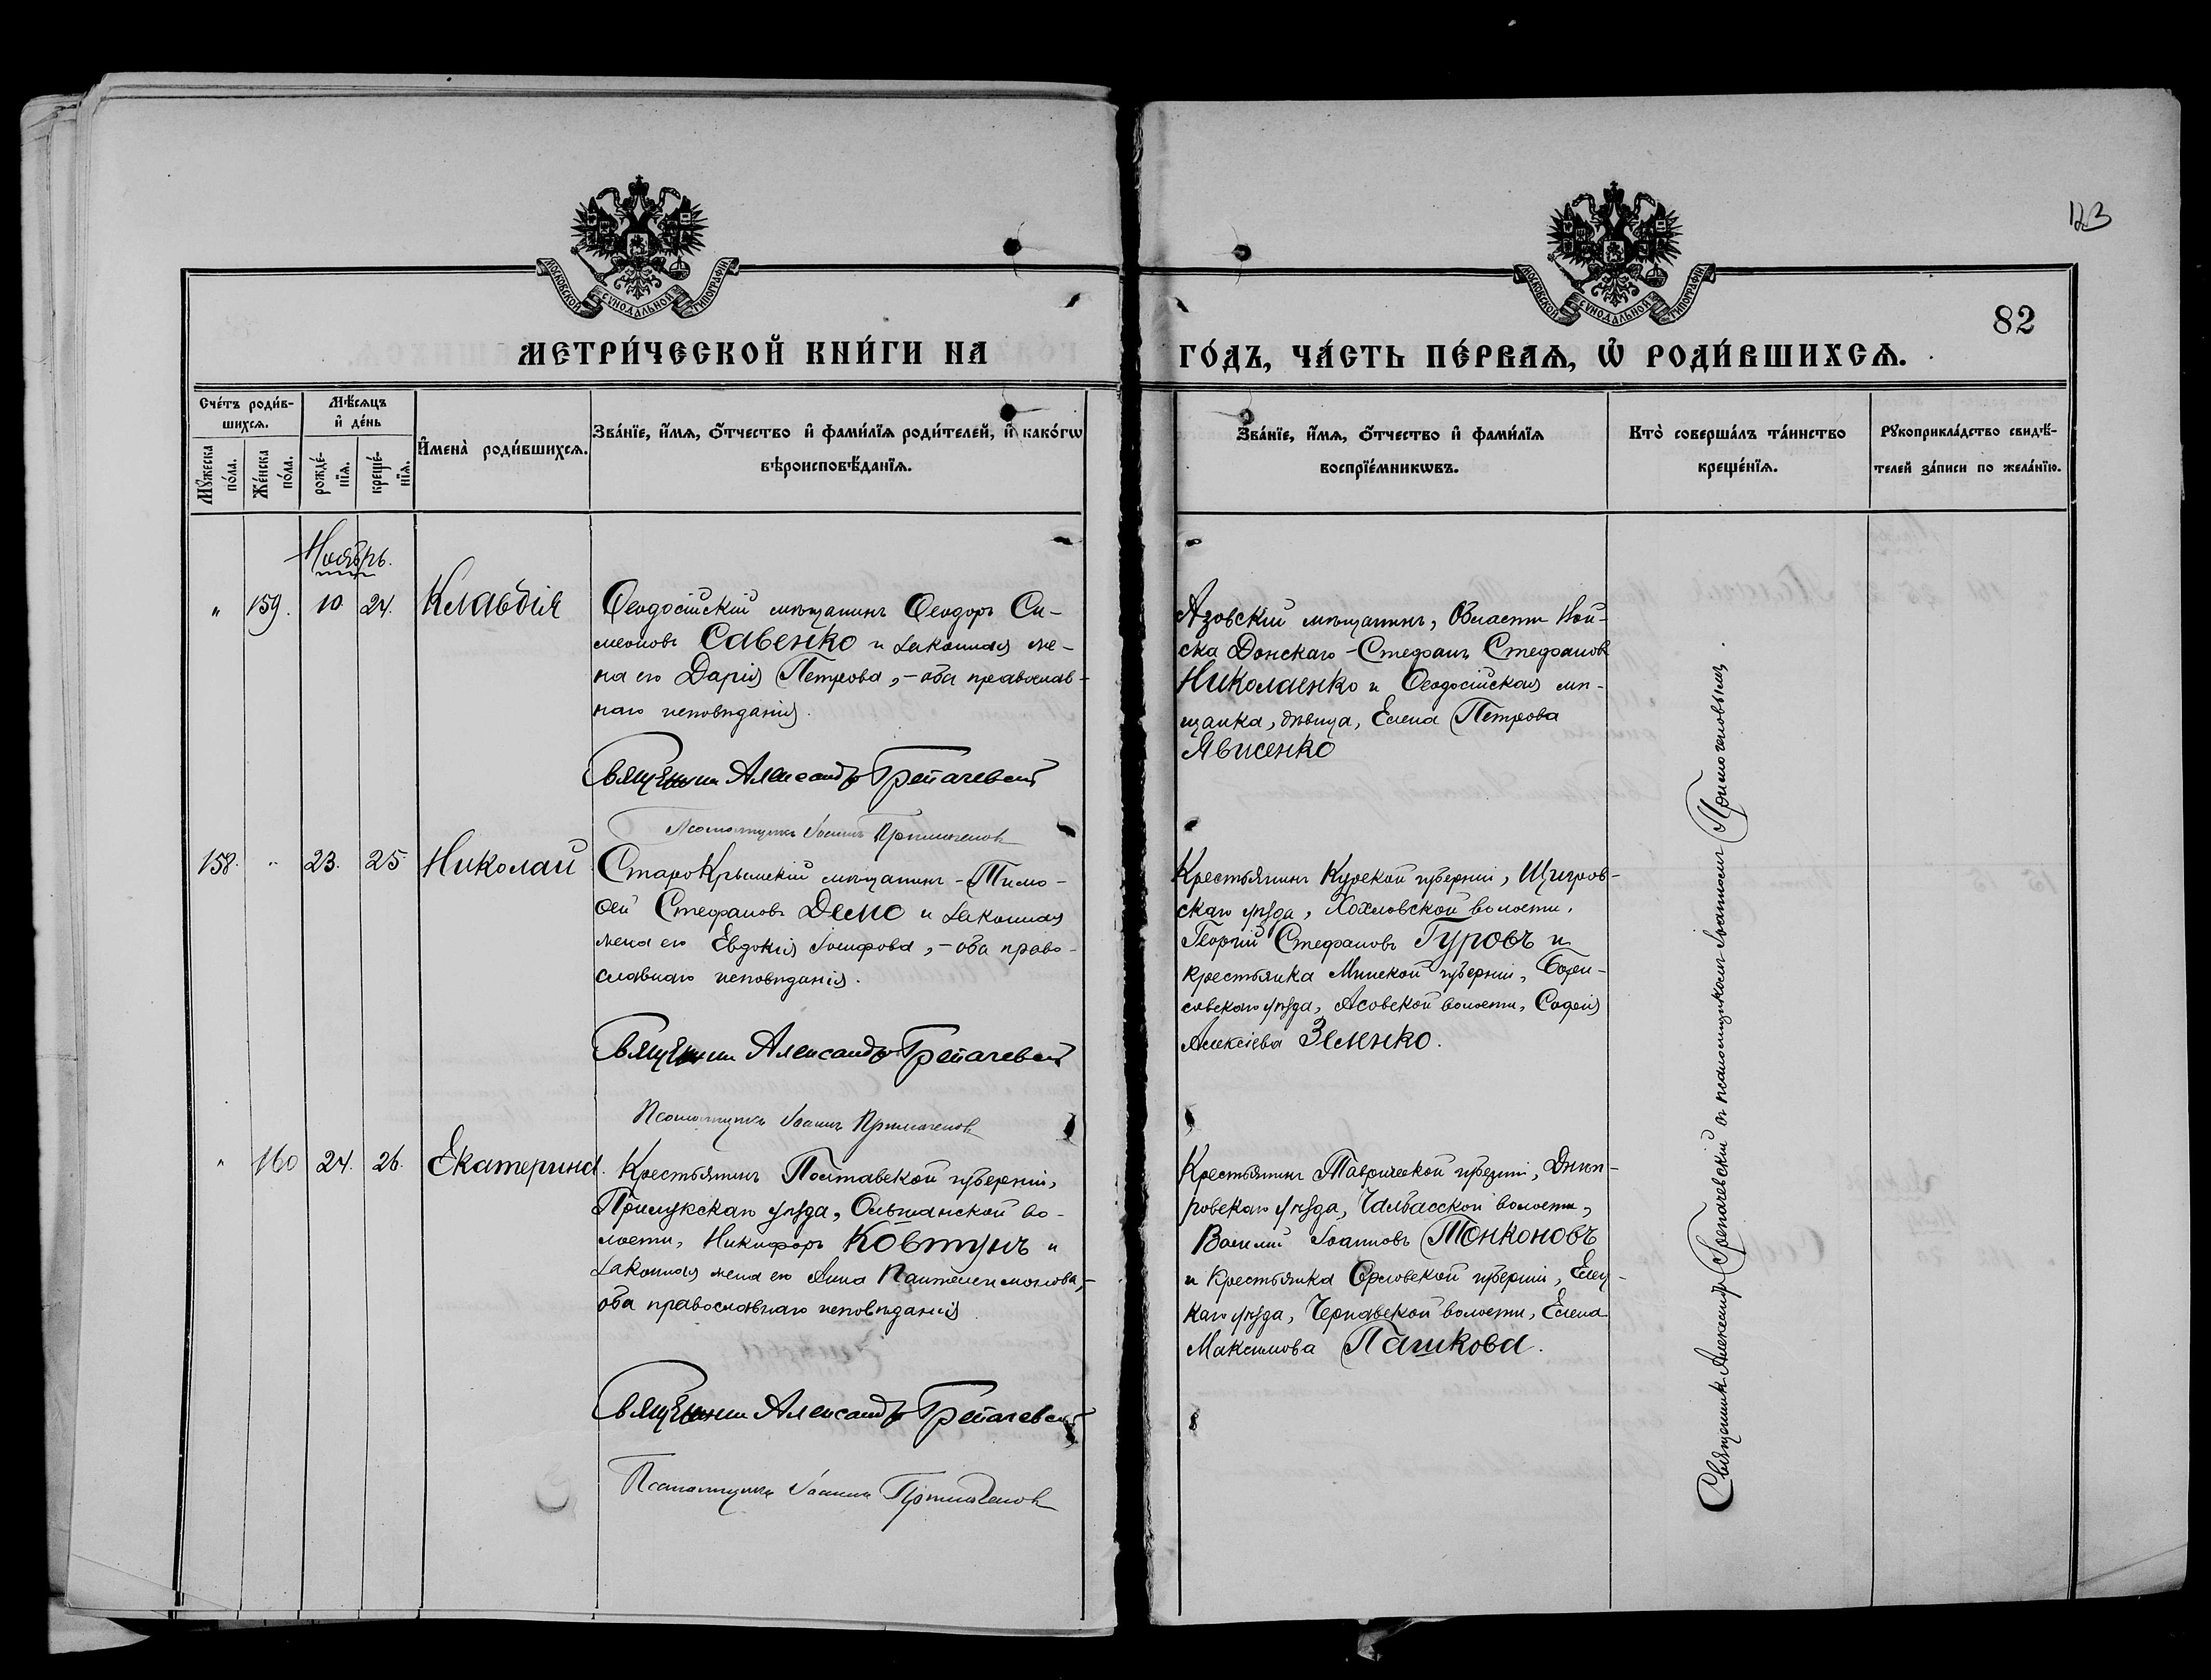 123
МОСКОВСКОЙ СѴНОДАЛЬНОЙ ТИПОГРАФІИ
МОСКОВСКОЙ СѴНОДАЛЬНОЙ ТИПОГРАФІИ
82
МЕТРИ́ЧЕСКОЙ КНИ́ГИ НА ГО́ДЪ, ЧА́СТЬ ПЕ́РВАѦ, Ѽ РОДИ́ВШИХСѦ.
Сче́тъ роди́в-
шихсѧ.
Мꙋ́жеска по́ла.
Же́нска по́ла.
Мѣ́сѧцъ
и҆ де́нь
рожде́-
нїѧ.
креще́-
нїѧ.
И҆мена̀ роди́вшихсѧ.
Зва́нїе, и҆́мѧ, ѻ҆́тчество и҆ фами́лїѧ роди́телей, и҆ како́гѡ
вѣроисповѣ́данїѧ.
Зва́нїе, и҆́мѧ, ѻ҆́тчество и҆ фами́лїѧ
воспрїе́мникѡвъ.
Кто̀ соверша́лъ та́инство
креще́нїѧ.
Рꙋкоприкла́дство свидѣ́-
телей за́писи по жела́нїю.
Ноябрь.
" 159. 10 24. Клавдія
Ѳеодосійскій мѣщанинъ Ѳеодоръ Си-
меоновъ Савенко и законная же-
на его Дарія Петрова, - оба православ-
наго исповѣданія.
Священникъ Александръ Трепачевскій
Псаломщикъ Іоаннъ Примогеновъ
Азовскій мѣщанинъ, Области Вой-
ска Донскаго - Стефанъ Стефановъ
Николаенко и Ѳеодосійская мѣ-
щанка, дѣвица, Елена Петрова
Явисенко
158. " 23. 25. Николай
СтароКрымскій мѣщанинъ - Тимо-
ѳей Стефановъ Демо и законная
жена его Евдокія Іосифова, - оба право-
славнаго исповѣданія.
Священникъ Александръ Трепачевскій
Псаломщикъ Іоаннъ Примогеновъ
Крестьянинъ Курской губерніи, Щигров-
скаго уѣзда, Хохловской волости,
Георгій Стефановъ Гуровъ и
крестьянка Минской губерніи, Бори-
совскаго уѣзда, волости, Софія
Алексіева Зеленко.
" 160 24. 26. Екатерина.
Крестьянинъ Полтавской губерніи,
Прилукскаго уѣзда, Ольшанской во-
лости, Никифоръ Ковтунъ и
законная жена его Анна Пантелеимонова, -
оба православнаго исповѣданія
Священникъ Александръ Трепачевскій
Псаломщикъ Іоаннъ Примогеновъ
Крестьянинъ Таврической губерніи, Днѣп-
ровскаго уѣзда, Чалбасской волости,
Василій Іоанновъ Тонконовъ
и крестьянка Орловской губерніи, Елец-
каго уѣзда, Чернавской волости, Елена
Максимова Пашкова.
Священникъ Александръ Трепачевскій съ псаломщикомъ Іоанномъ Примогеновымъ.